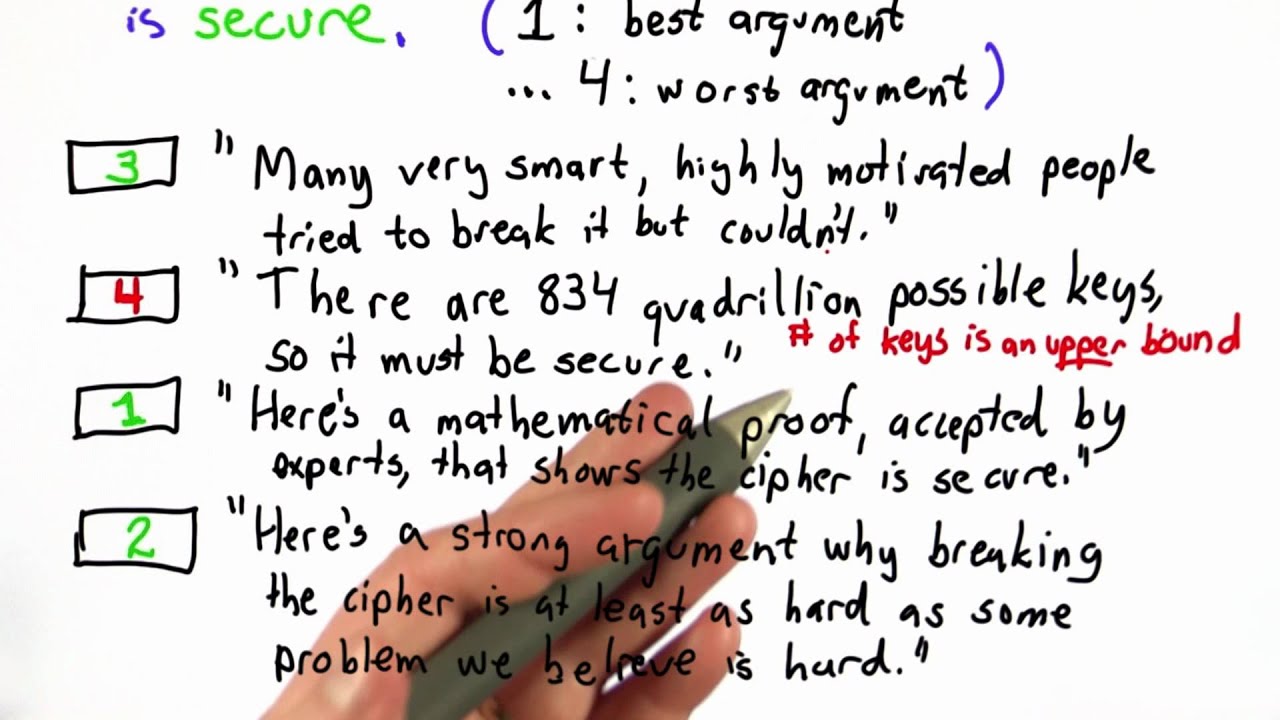 is secure. (1: best argument
... 4: worst argument)
3 "Many very smart, highly motivated people
tried to break it but couldn't."
4 "There are 834 quadrillion possible keys,
so it must be secure." # of keys is an upper bound
1 "Here's a mathematical proof, accepted by
experts, that shows the cipher is secure."
2 "Here's a strong argument why breaking
the cipher is at least as hard as some
problem we believe is hard."